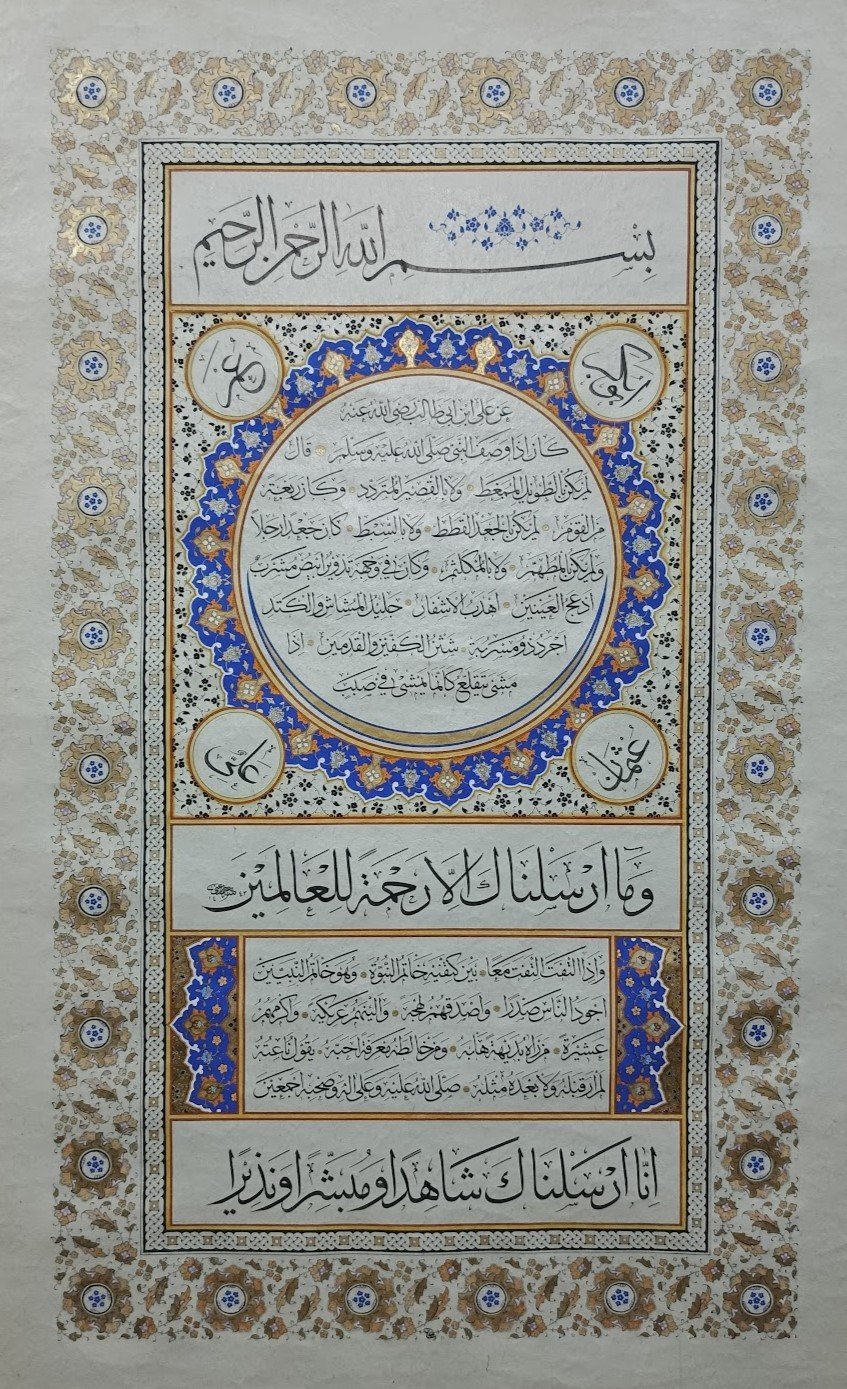 بِسْمِ اللهِ الرَّحْمٰنِ الرَّحِيمِ
ابوبكر
عمر
عن علي ابن ابي طالب رضي الله عنه
كان اذا وصف النبي صلى الله عليه وسلم قال
لم يكن بالطويل الممغط ولا بالقصير المتردد وكان ربعة
من القوم لم يكن بالجعد القطط ولا بالسبط كان جعدا رجلا
ولم يكن بالمطهم ولا بالمكلثم وكان في وجهه تدوير ابيض مشرب
ادعج العينين اهدب الاشفار جليل المشاش والكتد
اجرد ذو مسربة شثن الكفين والقدمين اذا
مشى تقلع كانما يمشي في صبب
عثمان
علي
وَمَا اَرْسَلْنَاكَ اِلَّا رَحْمَةً لِلْعَالَمِينَ
واذا التفت التفت معا بين كتفيه خاتم النبوة وهو خاتم النبيين
اجود الناس صدرا واصدقهم لهجة والينهم عريكة واكرمهم
عشيرة من رآه بديهة هابه ومن خالطه معرفة احبه يقول ناعته
لم ار قبله ولا بعده مثله صلى الله عليه وعلى اله وصحبه اجمعين
اِنَّا اَرْسَلْنَاكَ شَاهِدًا وَمُبَشِّرًا وَنَذِيرًا